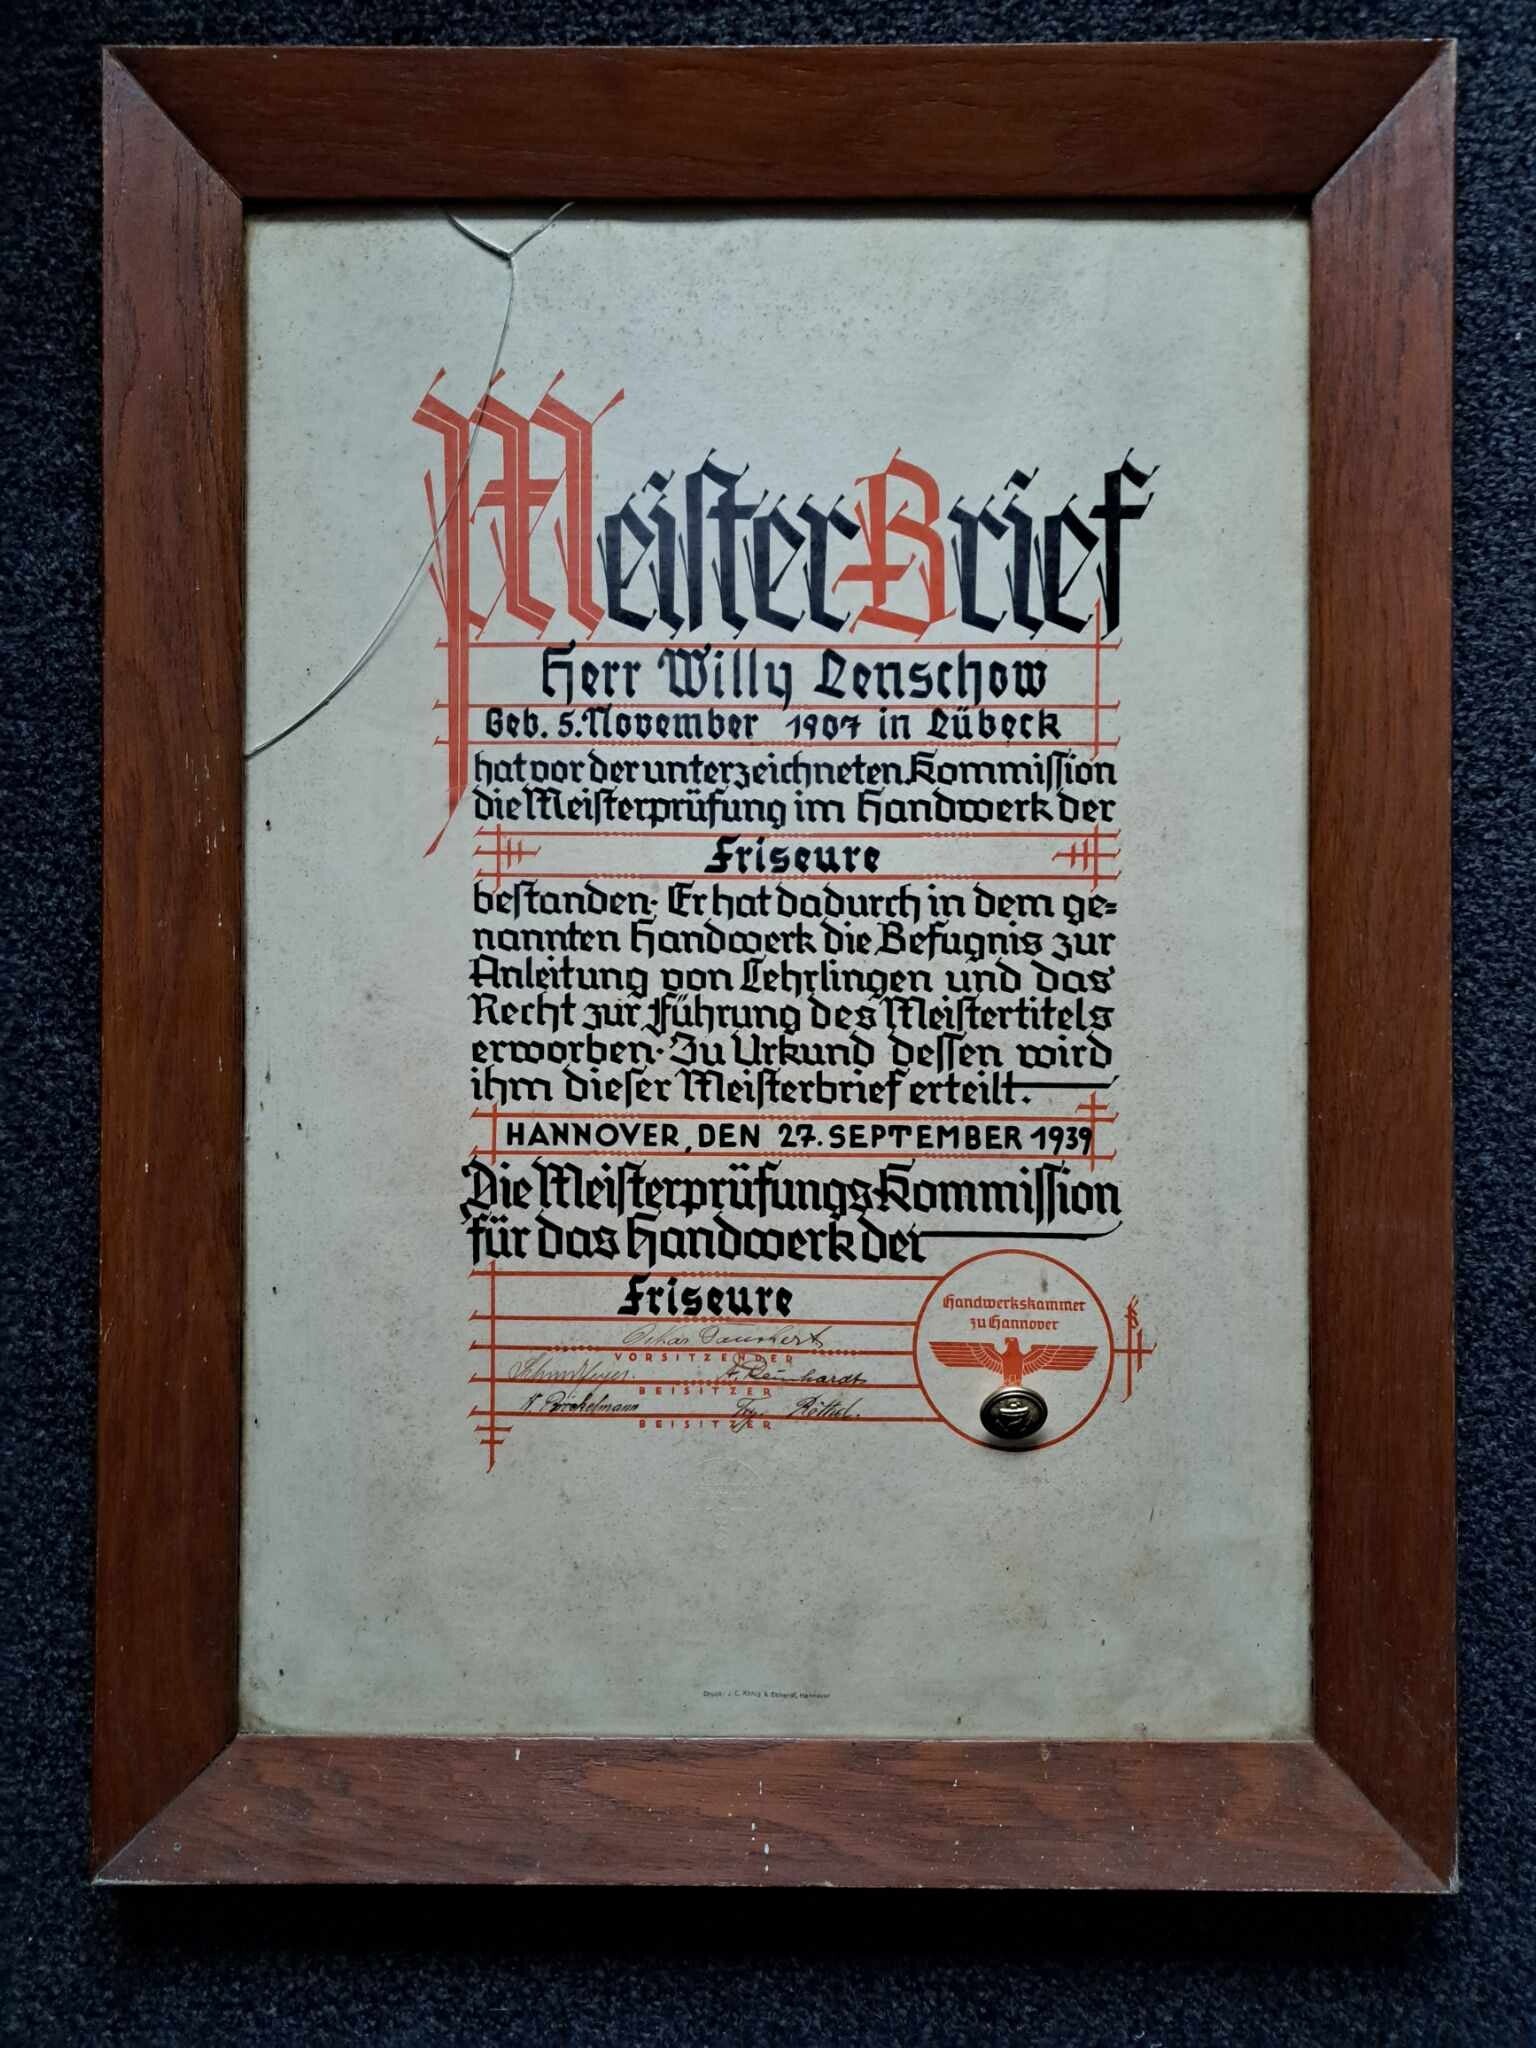 MeisterBrief
Herr Willy Lenschow
Geb. 5. November 1907 in Lübeck
hat vor der unterzeichneten Kommission
die Meisterprüfung im Handwerk der
Friseure
bestanden. Er hat dadurch in dem ge=
nannten Handwerk die Befugnis zur
Anleitung von Lehrlingen und das
Recht zur Führung des Meistertitels
erworben. Zu Urkund dessen wird
ihm dieser Meisterbrief erteilt.
HANNOVER, DEN 27. SEPTEMBER 1939
Die Meisterprüfungs-Kommission
für das Handwerk der
Friseure
Handwerkskammer
zu Hannover
Oskar
VORSITZENDER
Reinhardt
BEISITZER
Röthel.
BEISITZER
Druck: J. C. König & Ebhardt, Hannover